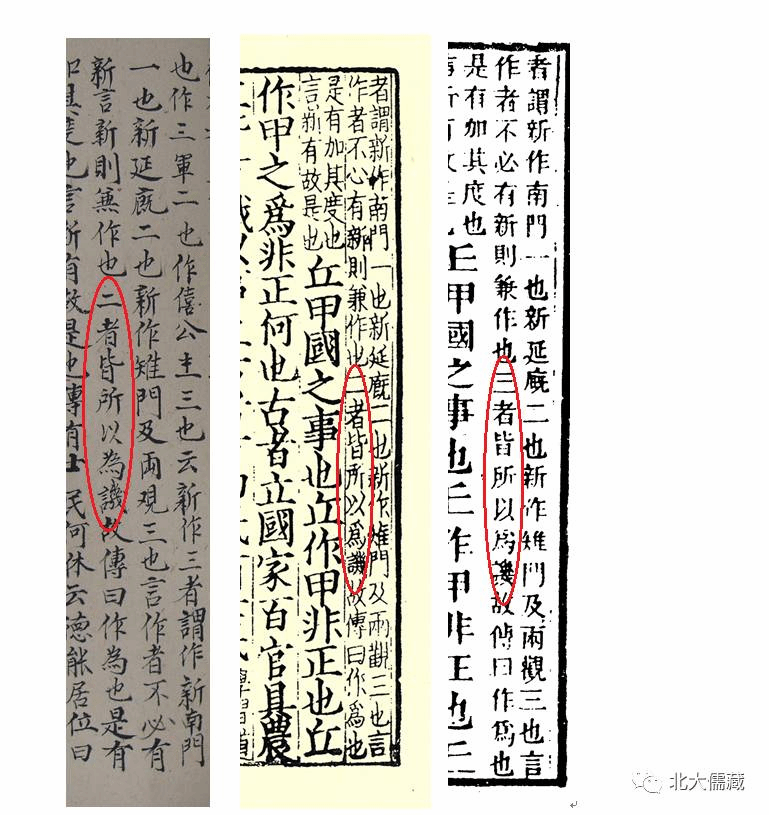 也作三軍二也作僖公主三也云新作三者謂作新南門
一也新延廐二也新作雉門及両覌三也言作者不必有
新言新則兼作也二者皆所以為譏故傳曰作為也是有
加其度也言新有故是也傳有士民何休云德能居位曰
者謂新作南門一也新延廐二也新作雉門及兩觀三也言
作者不必有新則兼作也二者皆所以爲譏故傳曰作爲也
是有加其度也
言新有故是也
丘甲國之事也丘作甲非正也丘
作甲之爲非正何也古者立國家百官具農
者謂新作南門一也新延廐二也新作雉門及兩觀三也言
作者不必有新則兼作也三者皆所以爲譏故傳曰作爲也
是有加其度也
丘甲國之事也丘作甲非正也丘
北大儒藏